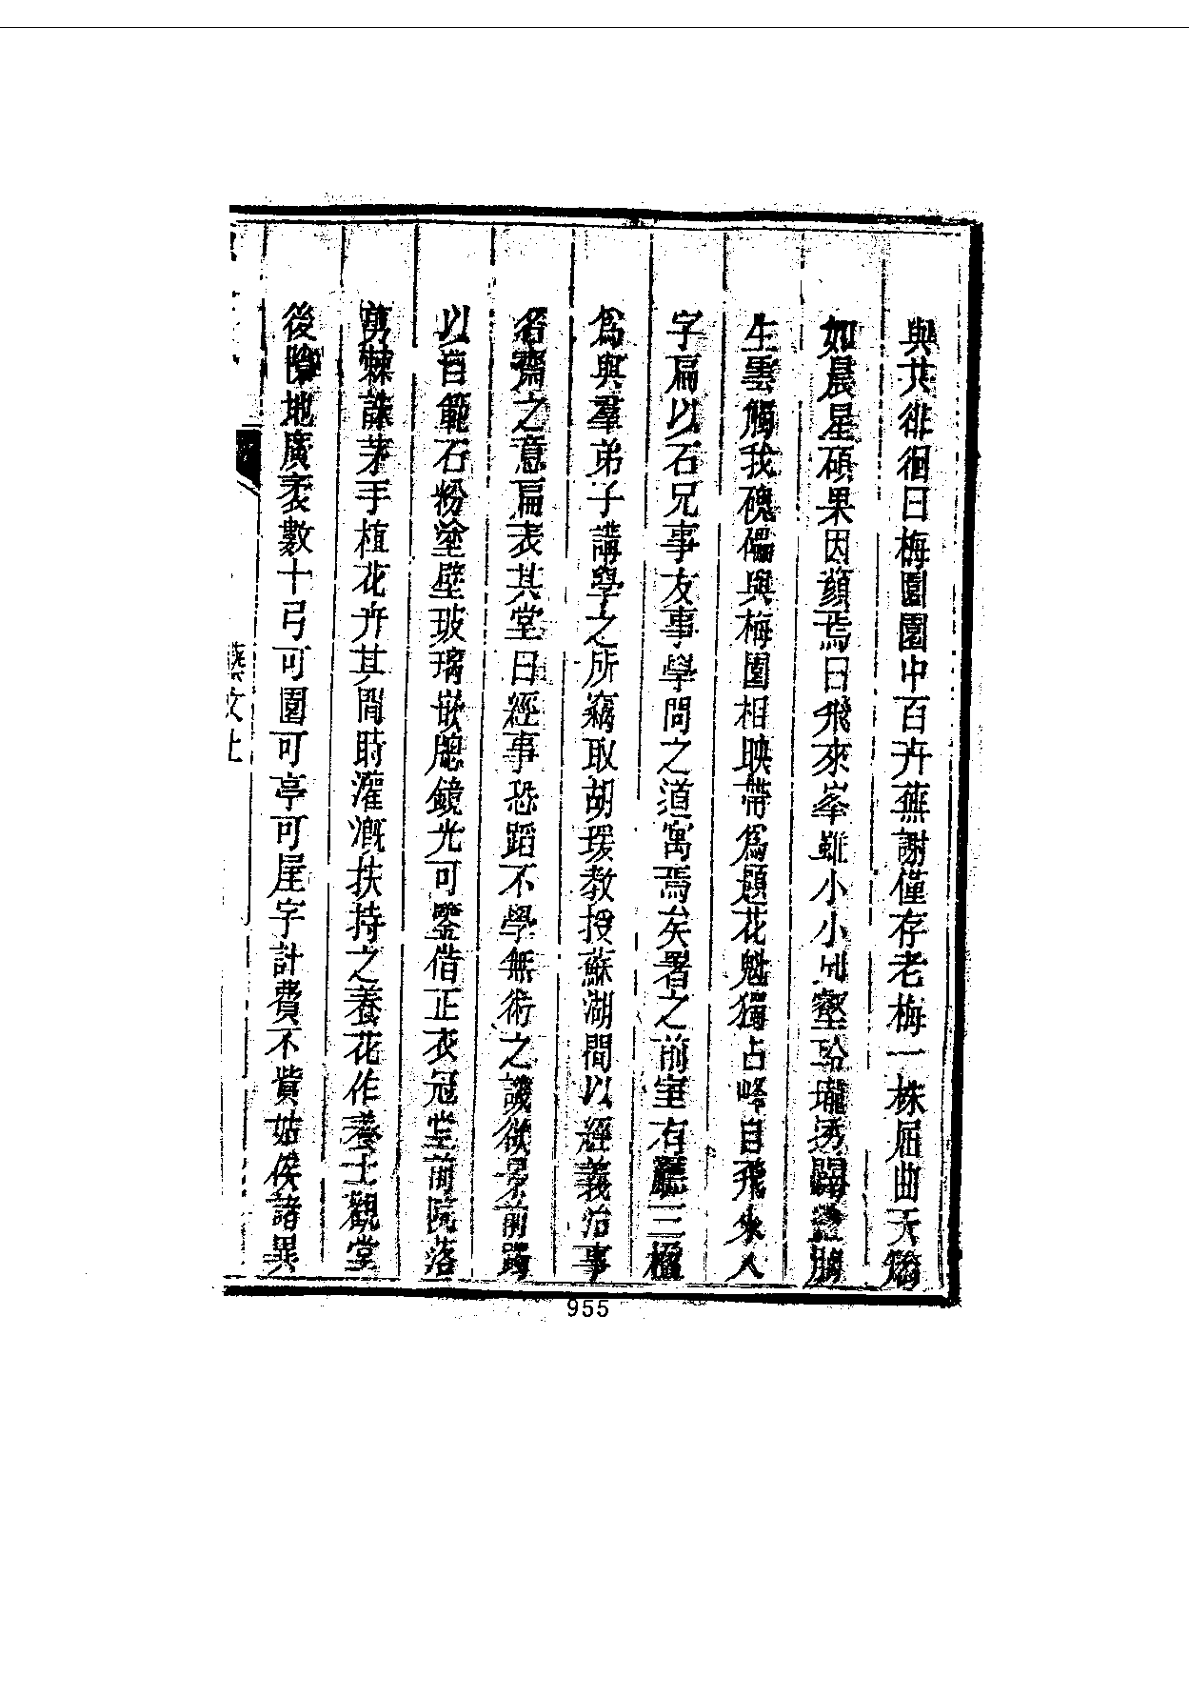 與共徘徊曰梅園園中百卉蕪謝僅存老梅一株屈曲夭矯
如晨星碩果因顔焉曰飛來峯雖小小邱壑玲瓏透闢登勝
生雲觸我磈礧與梅園相映帶爲題花魁獨占峰自飛來八
字扁以石兄事友事學問之道寓焉矣署之前室有廳三楹
爲與羣弟子講學之所竊取胡瑗教授蘇湖間以經義治事
名齋之意扁表其堂曰經事恐蹈不學無術之譏欲景前躅
以自範石粉塗壁玻璃嵌牕鏡光可鑒借正衣冠堂前院落
剪棘誅茅手植花卉其間時灌溉扶持之養花作養士觀堂
後隙地廣袤數十弓可園可亭可屋字計費不貲姑俟諸異
藝文上
955